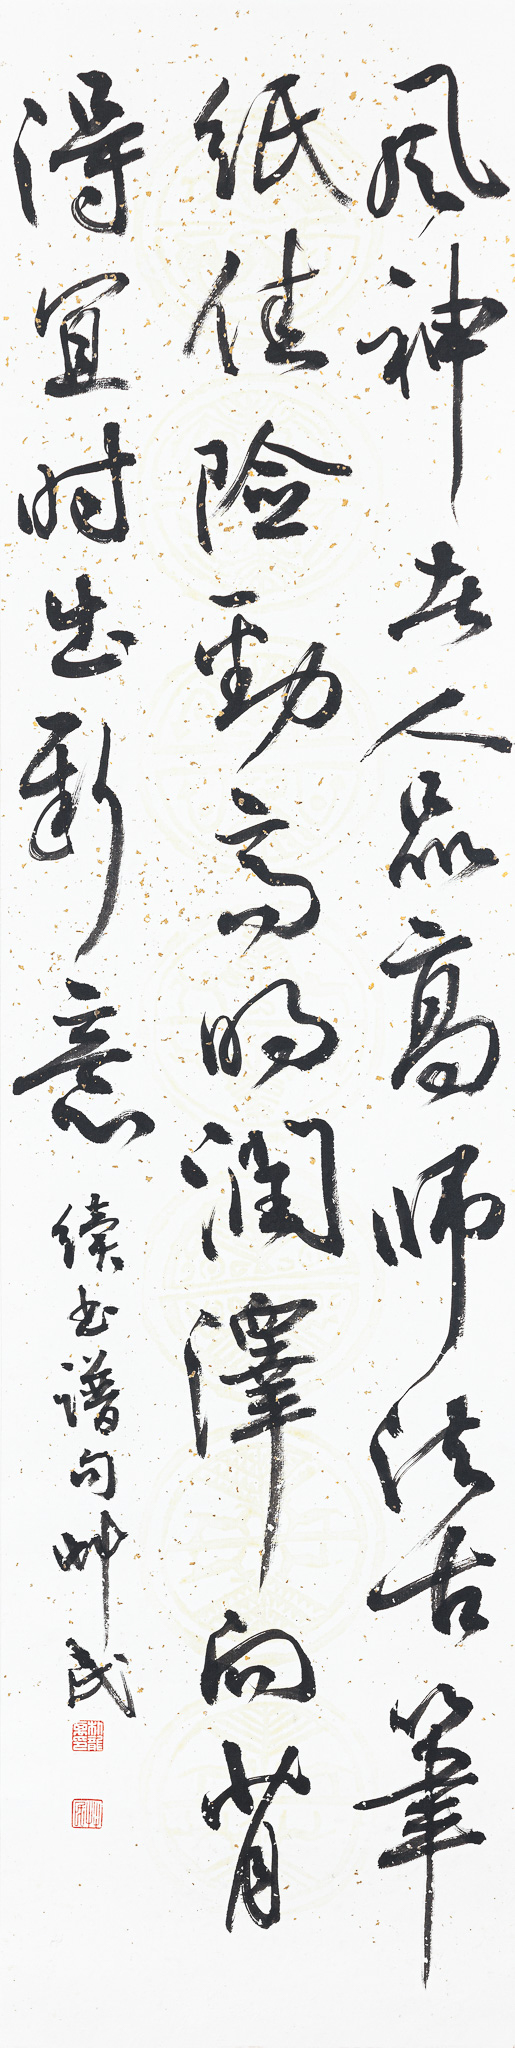 風神者人品高師法古筆
紙佳險勁高明潤澤向背
得宜時出新意 續書譜句 艸民